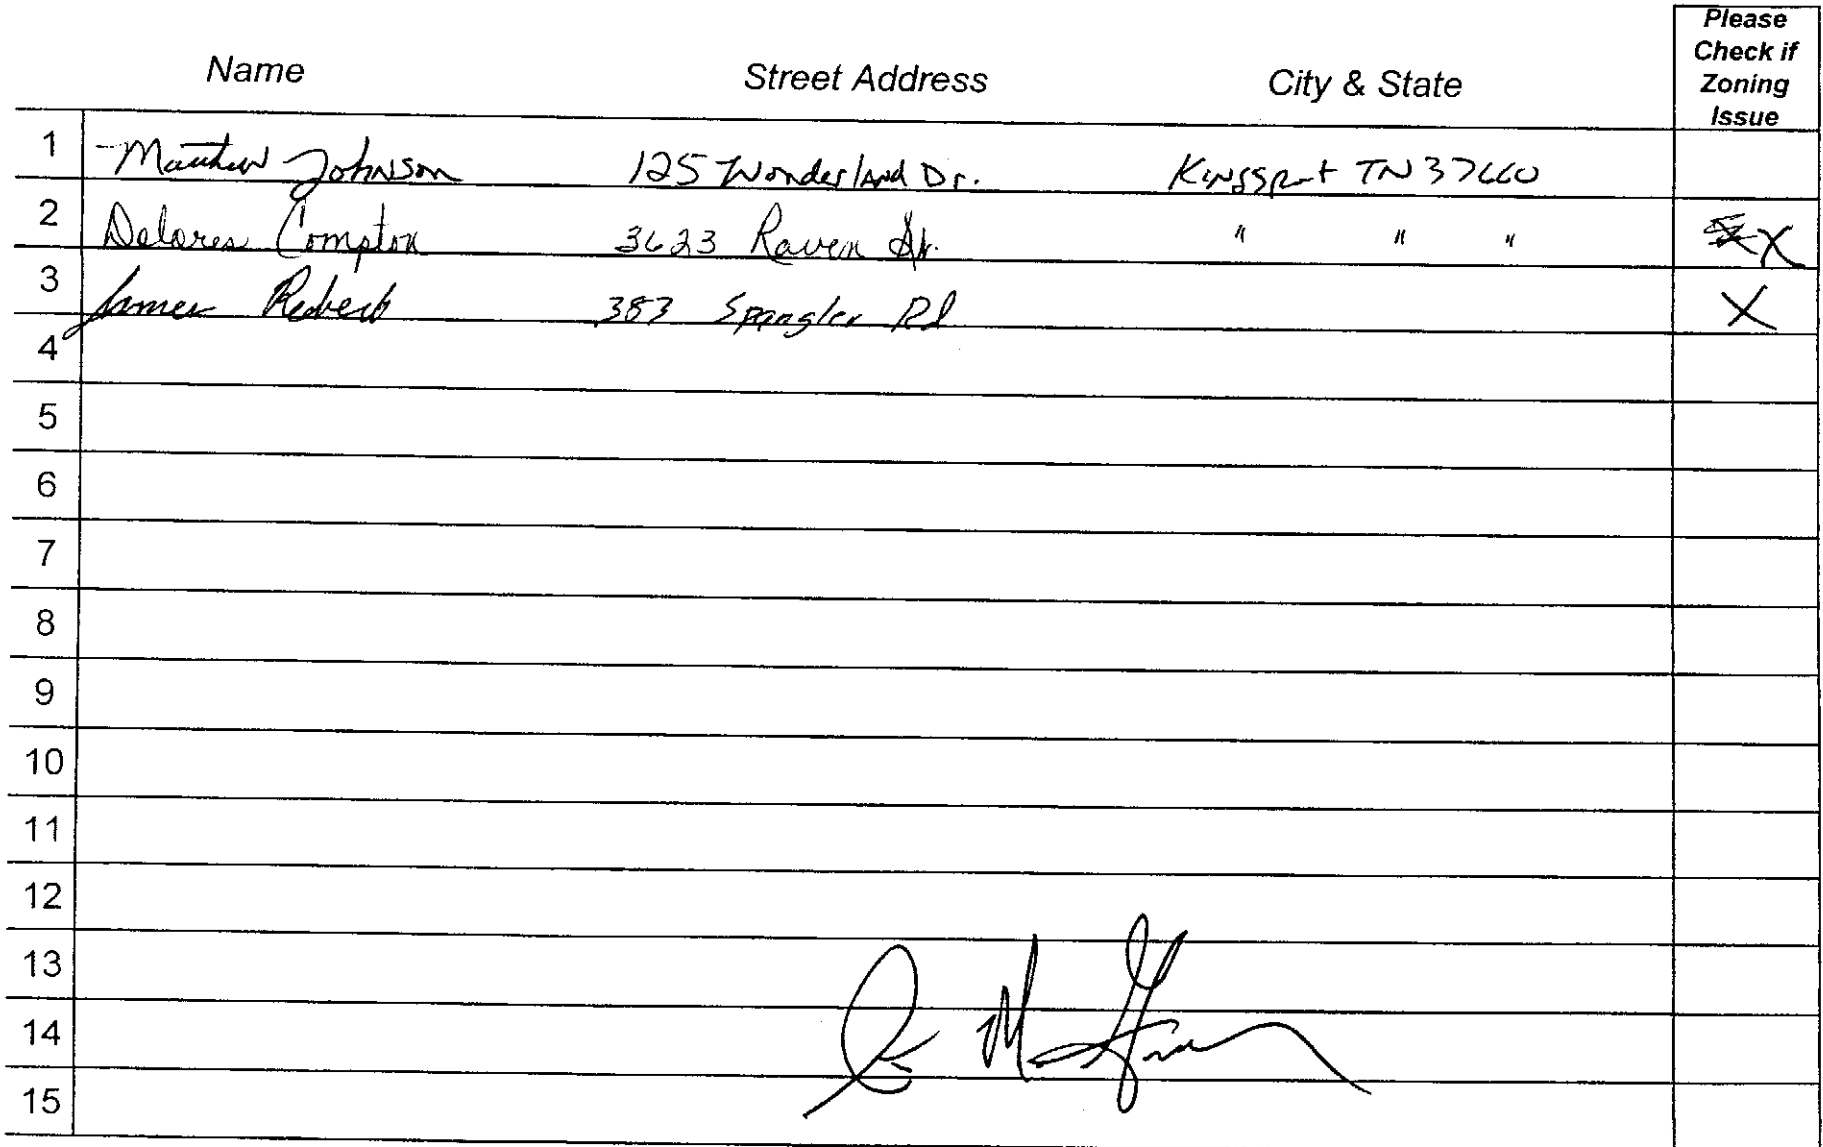 Name Street Address City & State Please Check if Zoning Issue
1 Matthew Johnson 125 Wonderland Dr. Kingsport TN 37660
2 Delores Compton 3623 Raven " " " X
3 James 383 Spangler Rd X
4
5
6
7
8
9
10
11
12
13
14
15